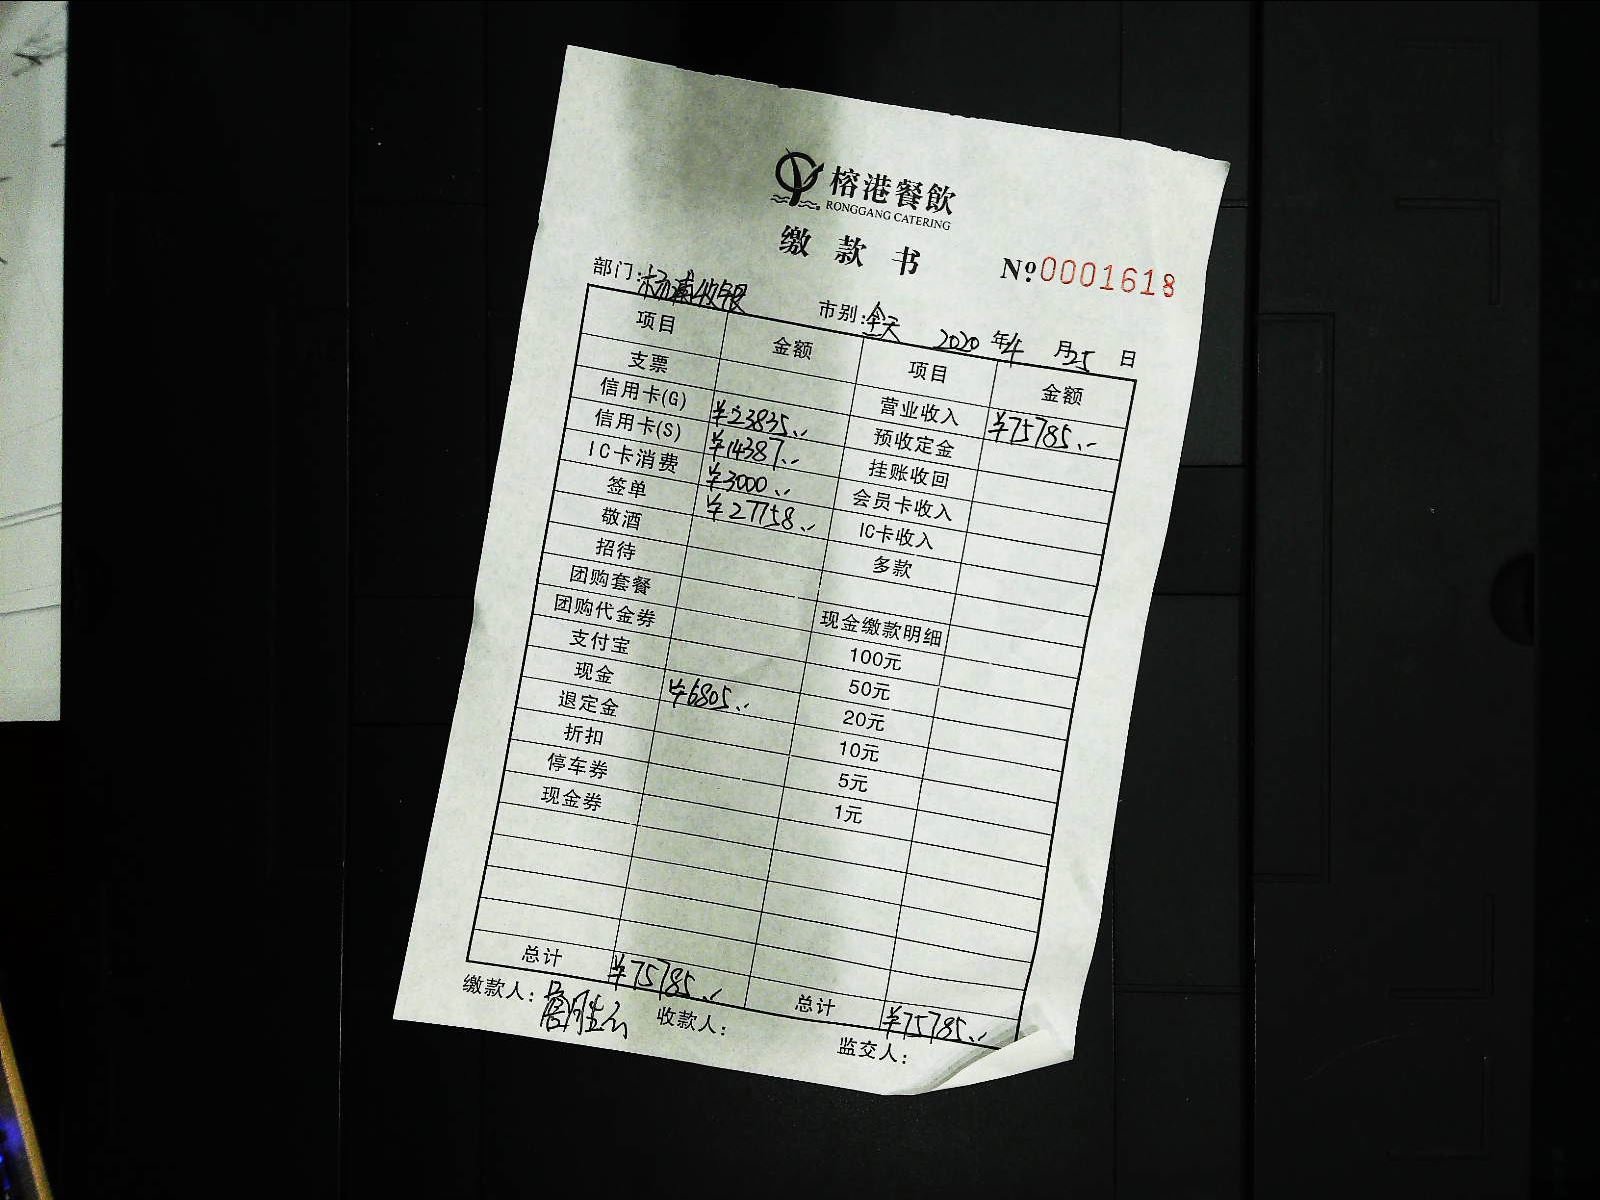 榕港餐飲
RONGGANG CATERING
缴款书 №0001618
部门:杨浦收银 市别:全天 2020年4月25日
项目 金额 项目 金额
支票 营业收入 ¥75785.-
信用卡(G) ¥23835.- 预收定金
信用卡(S) ¥14387.- 挂账收回
IC卡消费 ¥3000.- 会员卡收入
签单 ¥27758.- IC卡收入
敬酒 多款
招待
团购套餐 现金缴款明细
团购代金券 100元
支付宝 50元
现金 ¥6805.- 20元
退定金 10元
折扣 5元
停车券 1元
现金券
总计 ¥75785.- 总计 ¥75785.-
缴款人: 收款人: 监交人: